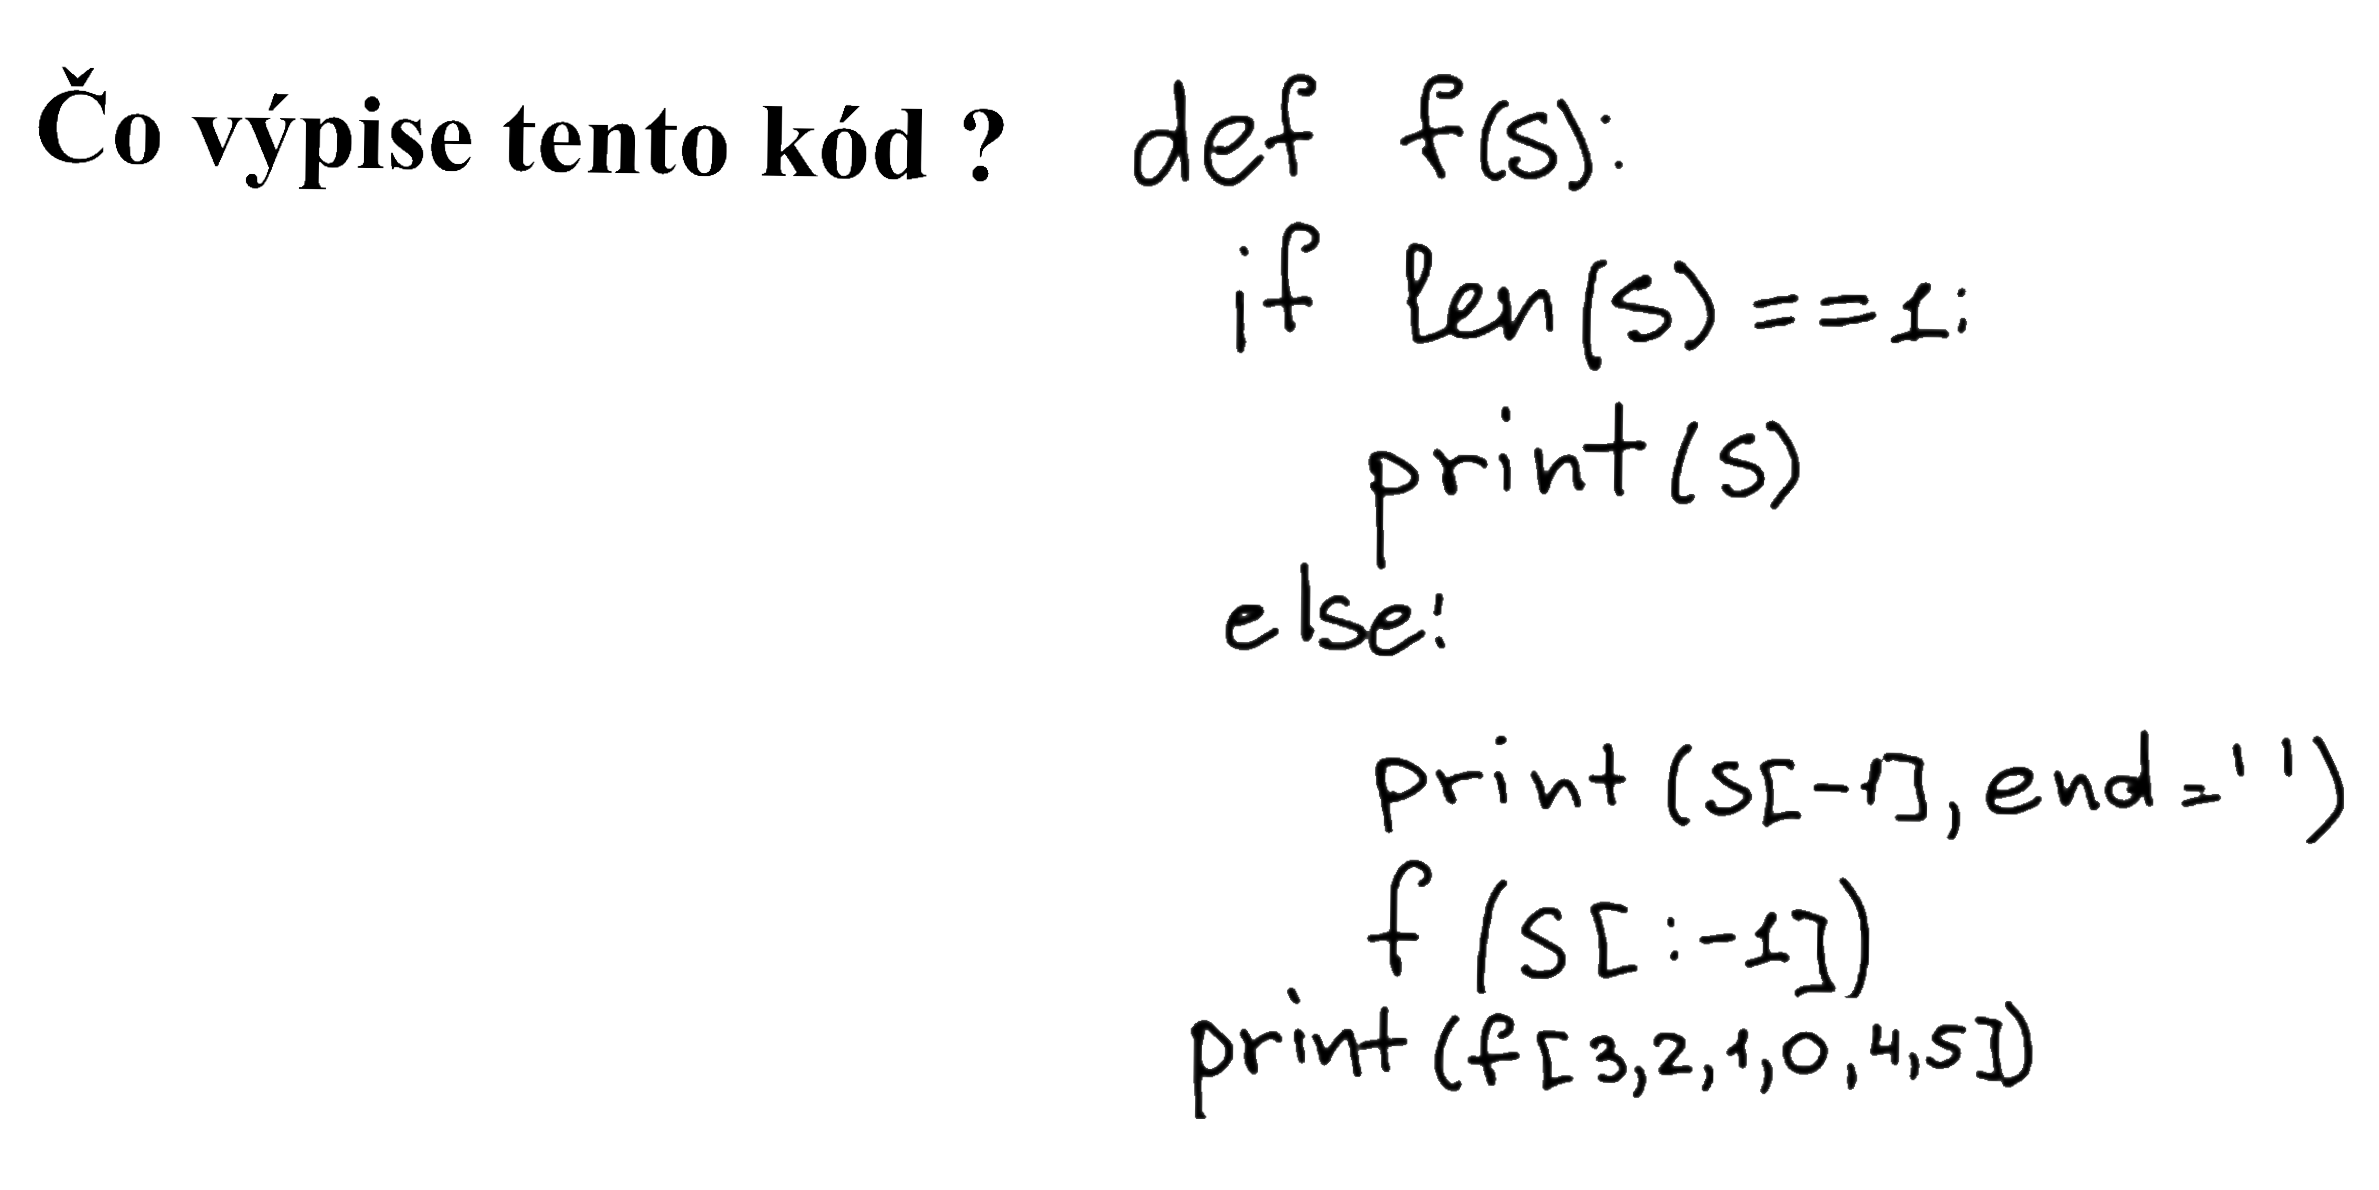 Čo výpise tento kód ?
def f(s):
if len(s)==1:
print(s)
else:
print(s[-1],end='')
f(s[:-1])
print(f[3,2,1,0,4,5])